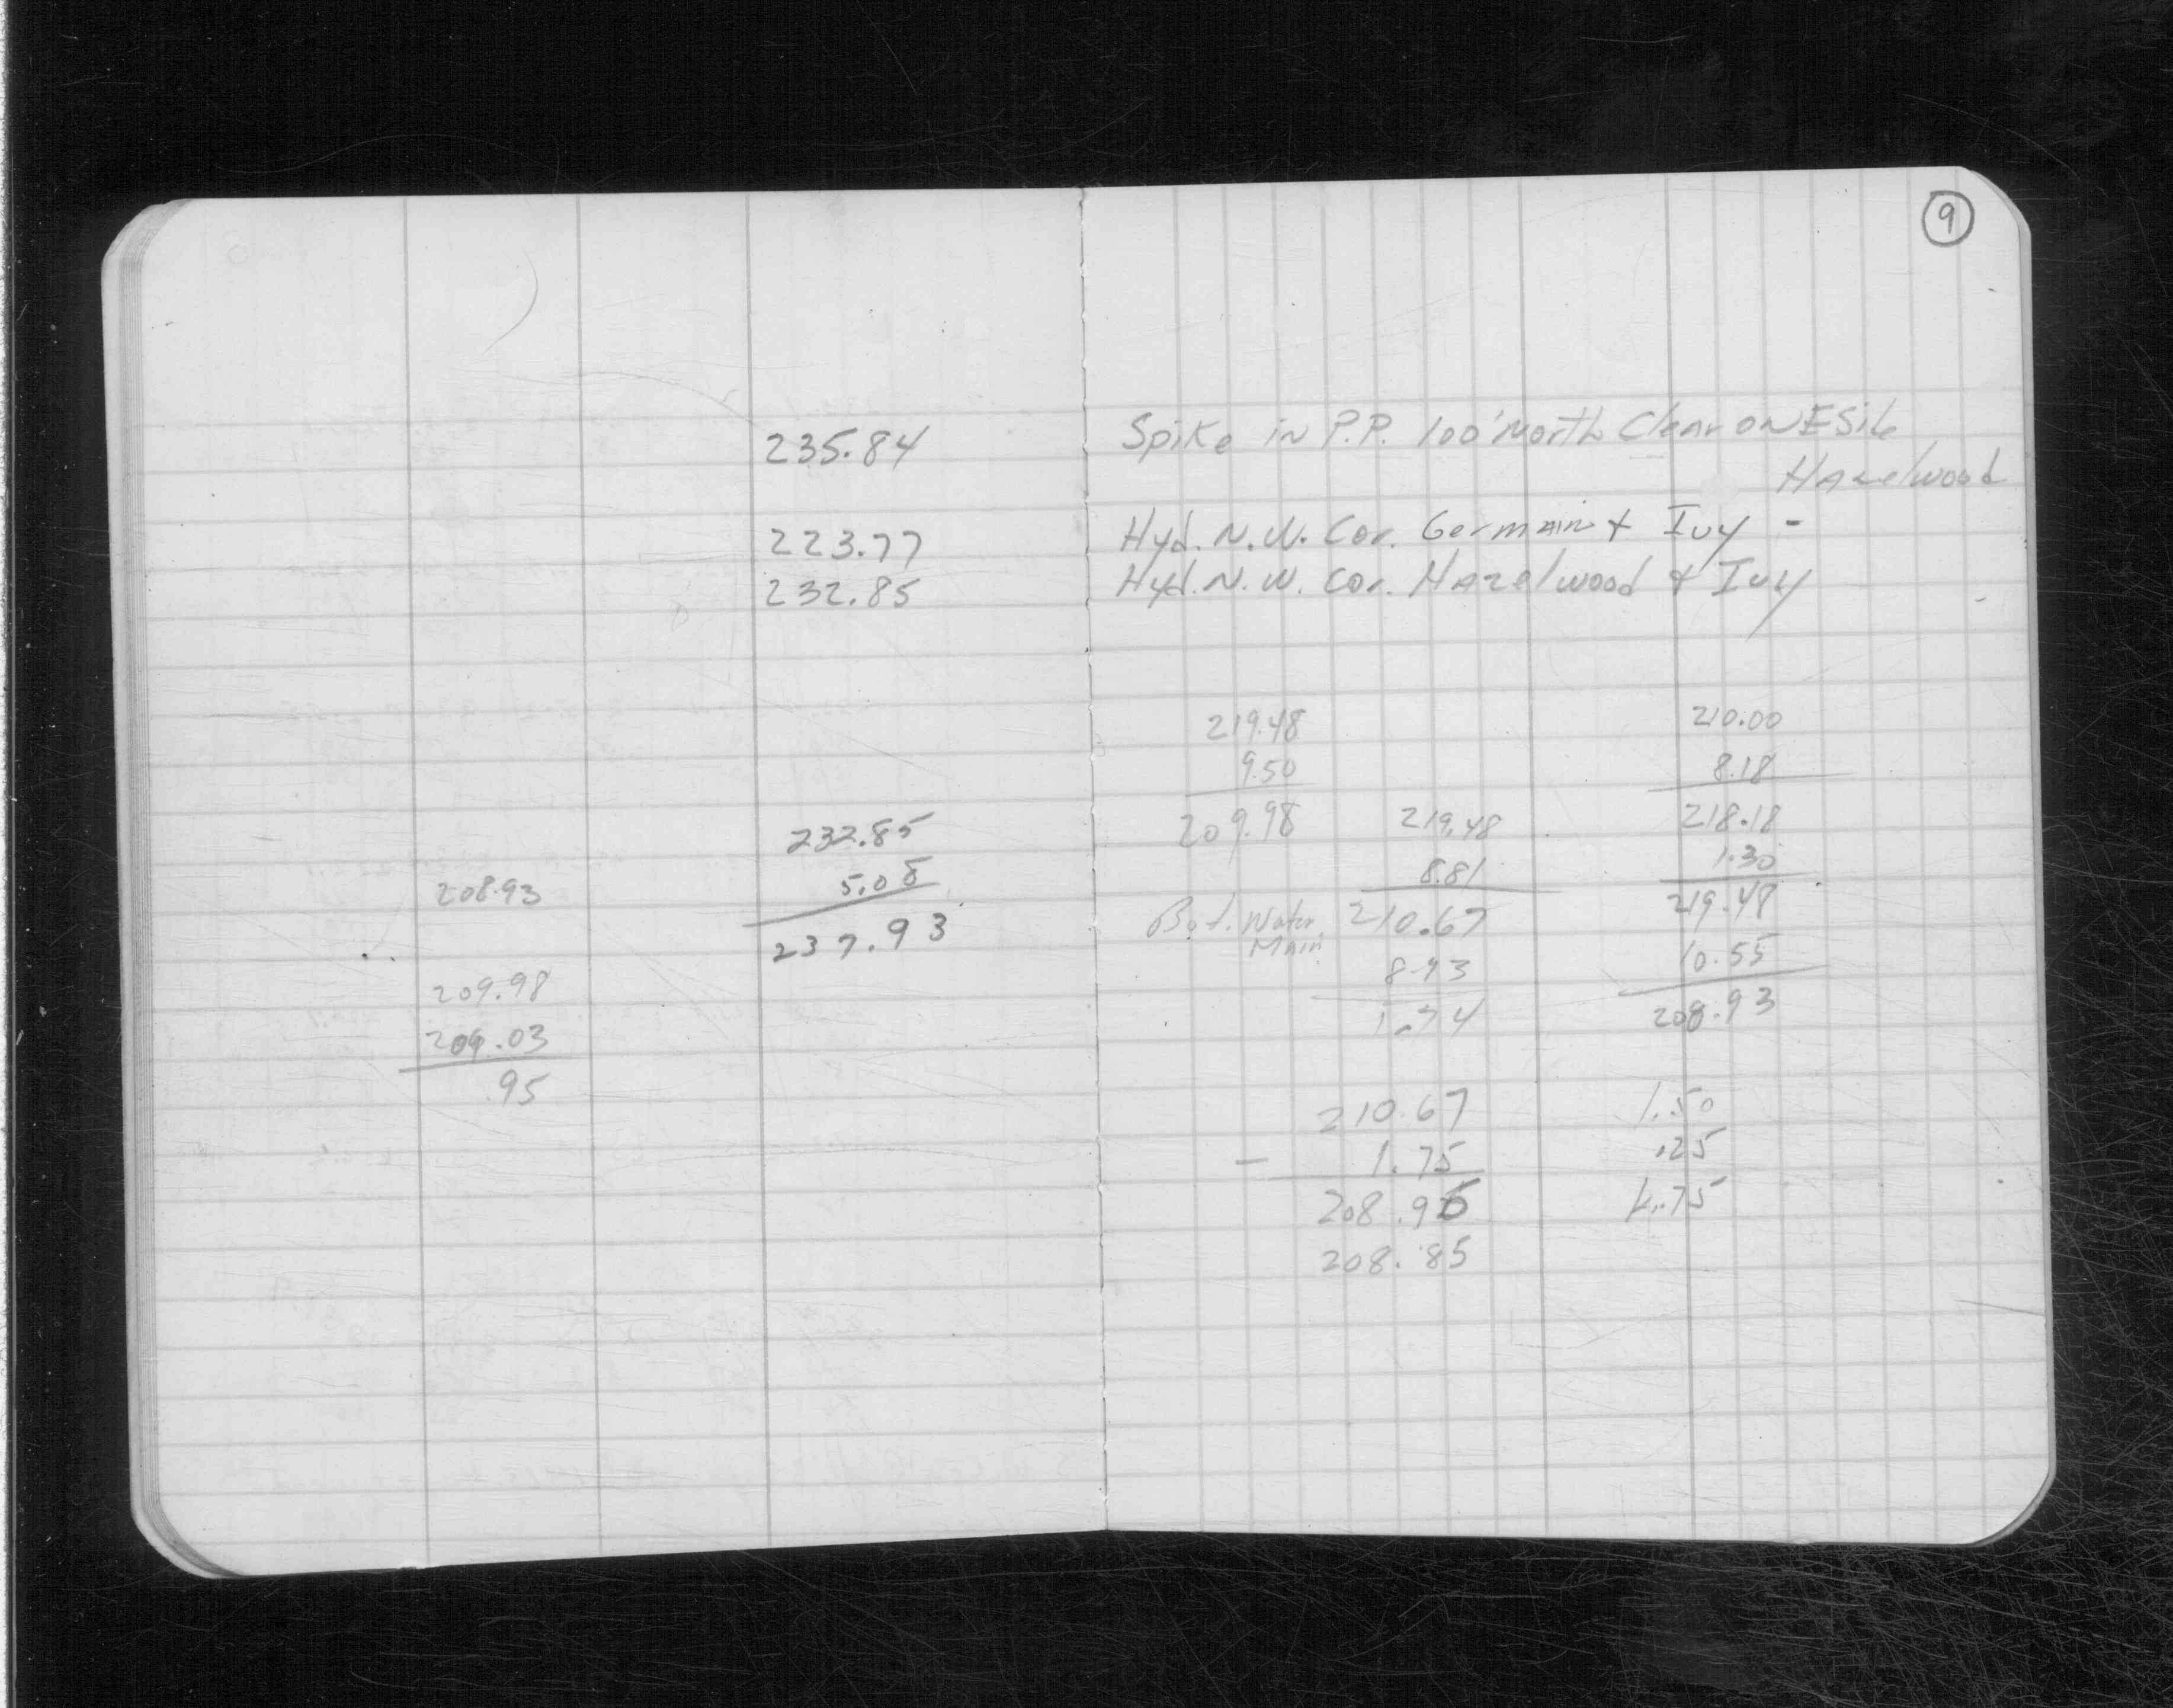 9
235.84 Spike in P.P. 100' North Clear on E Side
Hazelwood
223.77 Hyd. N.W. Cor. Germain + Ivy -
232.85 Hyd. N.W. Cor. Hazelwood + Ivy
232.85
5.08
237.93
208.93
209.98
209.03
.95
219.48
9.50
209.98
219.48
8.81
Bot. Water Main 210.67
8.93
1.74
210.00
8.18
218.18
1.30
219.48
10.55
208.93
210.67
- 1.75
208.96
208.85
1.50
.25
1.75